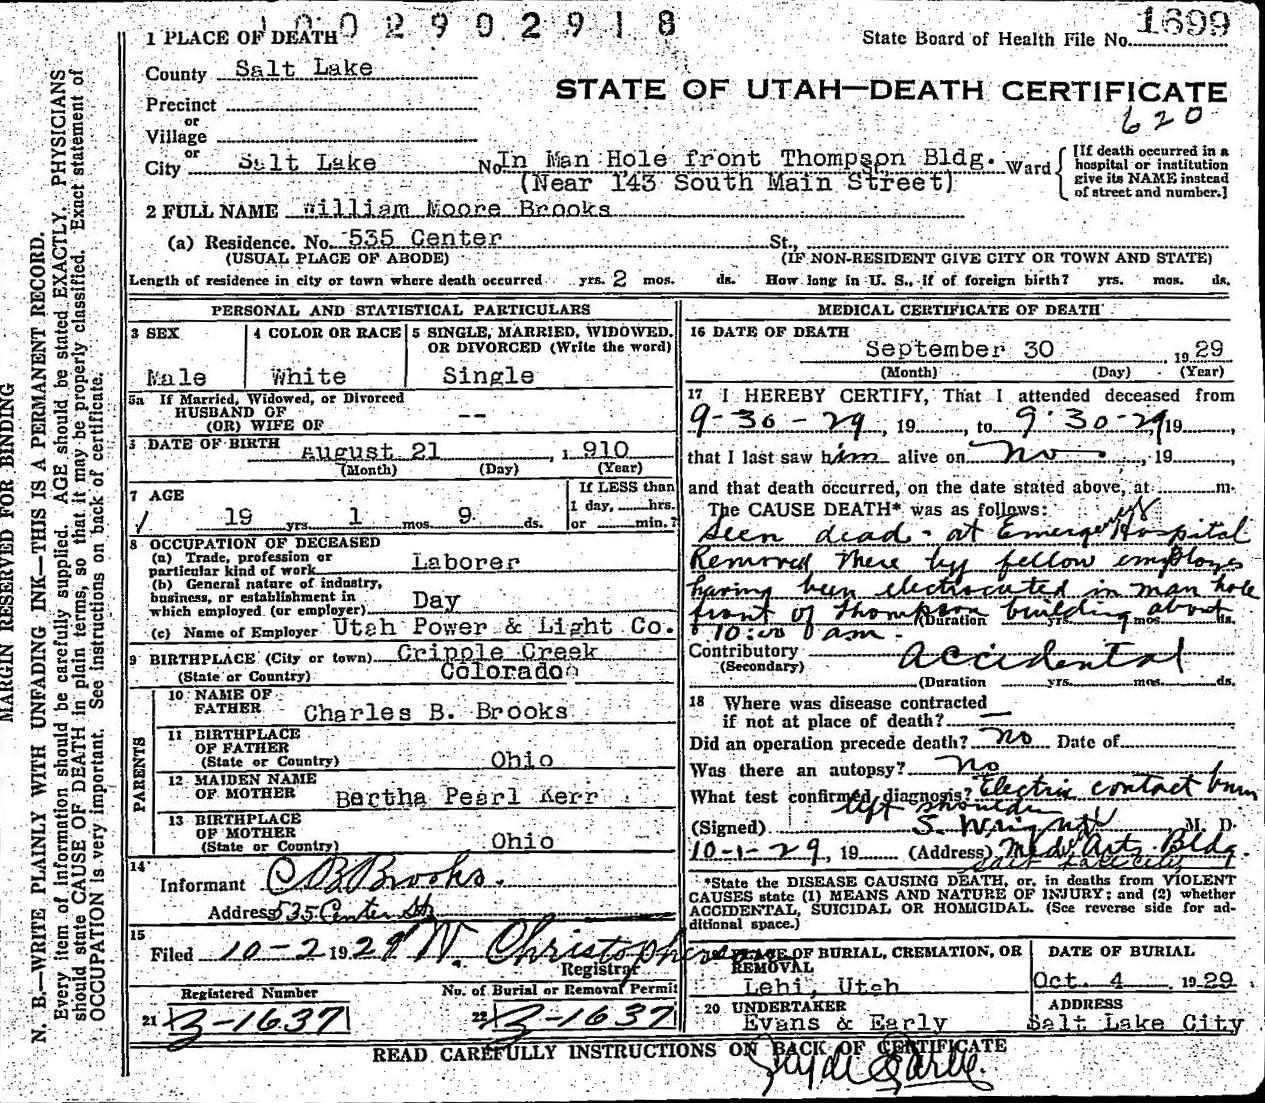 1002902918
1699
1 PLACE OF DEATH
State Board of Health File No.
County Salt Lake
STATE OF UTAH—DEATH CERTIFICATE
Precinct
or
620
Village
or
City Salt Lake No. In Man Hole front Thompson Bldg. Ward
(Near 143 South Main Street)
[If death occurred in a
hospital or institution
give its NAME instead
of street and number.]
2 FULL NAME William Moore Brooks
(a) Residence. No. 535 Center St.,
(USUAL PLACE OF ABODE) (IF NON-RESIDENT GIVE CITY OR TOWN AND STATE)
Length of residence in city or town where death occurred yrs. 2 mos. ds. How long in U. S., if of foreign birth? yrs. mos. ds.
PERSONAL AND STATISTICAL PARTICULARS
3 SEX
Male
4 COLOR OR RACE
White
5 SINGLE, MARRIED, WIDOWED,
OR DIVORCED (Write the word)
Single
5a If Married, Widowed, or Divorced
HUSBAND OF
(OR) WIFE OF --
DATE OF BIRTH August 21, 1910
(Month) (Day) (Year)
7 AGE
19 yrs. 1 mos. 9 ds.
If LESS than
1 day, hrs.
or min.?
8 OCCUPATION OF DECEASED
(a) Trade, profession or
particular kind of work Laborer
(b) General nature of industry,
business, or establishment in
which employed (or employer) Day
(c) Name of Employer Utah Power & Light Co.
9 BIRTHPLACE (City or town) Cripple Creek
(State or Country) Colorado
PARENTS
10 NAME OF
FATHER Charles B. Brooks
11 BIRTHPLACE
OF FATHER
(State or Country) Ohio
12 MAIDEN NAME
OF MOTHER Bertha Pearl Kerr
13 BIRTHPLACE
OF MOTHER
(State or Country) Ohio
14
Informant C B Brooks.
Address 535 Center St
15
Filed 10-2 1929 W. Christopherson
Registrar
Registered Number
21 B-1637
No. of Burial or Removal Permit
22 B-1637
MEDICAL CERTIFICATE OF DEATH
16 DATE OF DEATH
September 30, 1929
(Month) (Day) (Year)
17 I HEREBY CERTIFY, That I attended deceased from
9-30-29, 19, to 9-30-29, 19,
that I last saw him alive on no, 19,
and that death occurred, on the date stated above, at m.
The CAUSE DEATH* was as follows:
Seen dead - at Emergency Hospital
Removed there by fellow employes
having been electrocuted in man hole
front of Thompson building about
(Duration yrs. mos. ds.
10:00 am.
Contributory Accidental
(Secondary)
(Duration yrs. mos. ds.
18 Where was disease contracted
if not at place of death? —
Did an operation precede death? no Date of
Was there an autopsy? no
What test confirmed diagnosis? Electric contact burn
left shoulder
(Signed) S. Wright M. D.
10-1-29, 19 (Address) Med. Arts. Bldg.
Salt Lake City
*State the DISEASE CAUSING DEATH, or, in deaths from VIOLENT
CAUSES state (1) MEANS AND NATURE OF INJURY; and (2) whether
ACCIDENTAL, SUICIDAL OR HOMICIDAL. (See reverse side for ad-
ditional space.)
PLACE OF BURIAL, CREMATION, OR
REMOVAL
Lehi, Utah
DATE OF BURIAL
Oct. 4 1929.
20 UNDERTAKER
Evans & Early
ADDRESS
Salt Lake City
READ CAREFULLY INSTRUCTIONS ON BACK OF CERTIFICATE
MARGIN RESERVED FOR BINDING
N. B.—WRITE PLAINLY WITH UNFADING INK—THIS IS A PERMANENT RECORD.
Every item of information should be carefully supplied. AGE should be stated EXACTLY. PHYSICIANS
should state CAUSE OF DEATH in plain terms, so that it may be properly classified. Exact statement of
OCCUPATION is very important. See instructions on back of certificate.